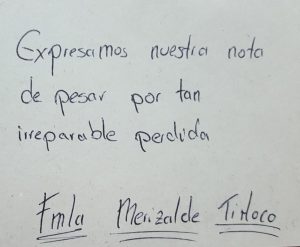 Expresamos nuestra nota
de pesar por tan
irreparable perdida
Fmla Merizalde Tinoco